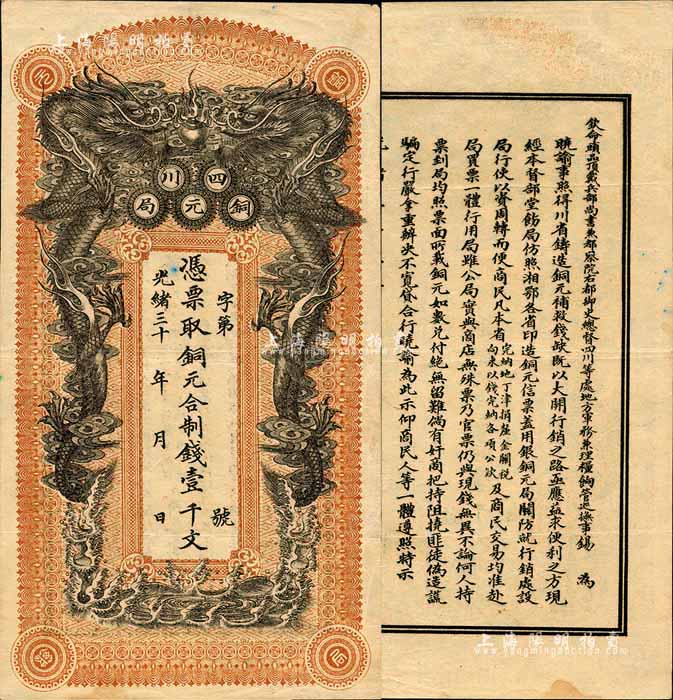 上海陽明拍賣
四川
銅元局
字第
號
憑票取銅元合制錢壹千文
光緒三十 年 月 日
欽命頭品頂戴兵部尚書兼都察院右都御史總督四川等處地方軍務兼理糧餉管巡撫事錫 為
曉諭事照得川省鑄造銅元補救錢缺既以大開行銷之路亟應益求便利之方現
經本督部堂飭局仿照湘鄂各省印造銅元信票蓋用銀銅元局關防就行銷處設
局行使以資周轉而便商民凡本省完納地丁津捐釐金關稅向來以錢完納各項公款及商民交易均准赴
局買票一體行用局雖公局實與商店無殊票乃官票仍與現錢無異不論何人持
票到局均照票面所載銅元如數兌付絕無留難倘有奸商把持阻撓匪徒偽造謊
騙定行嚴拿重辦決不寬貸合行曉諭為此示仰商民人等一體遵照特示
上海陽明拍賣
yangmingauction.com